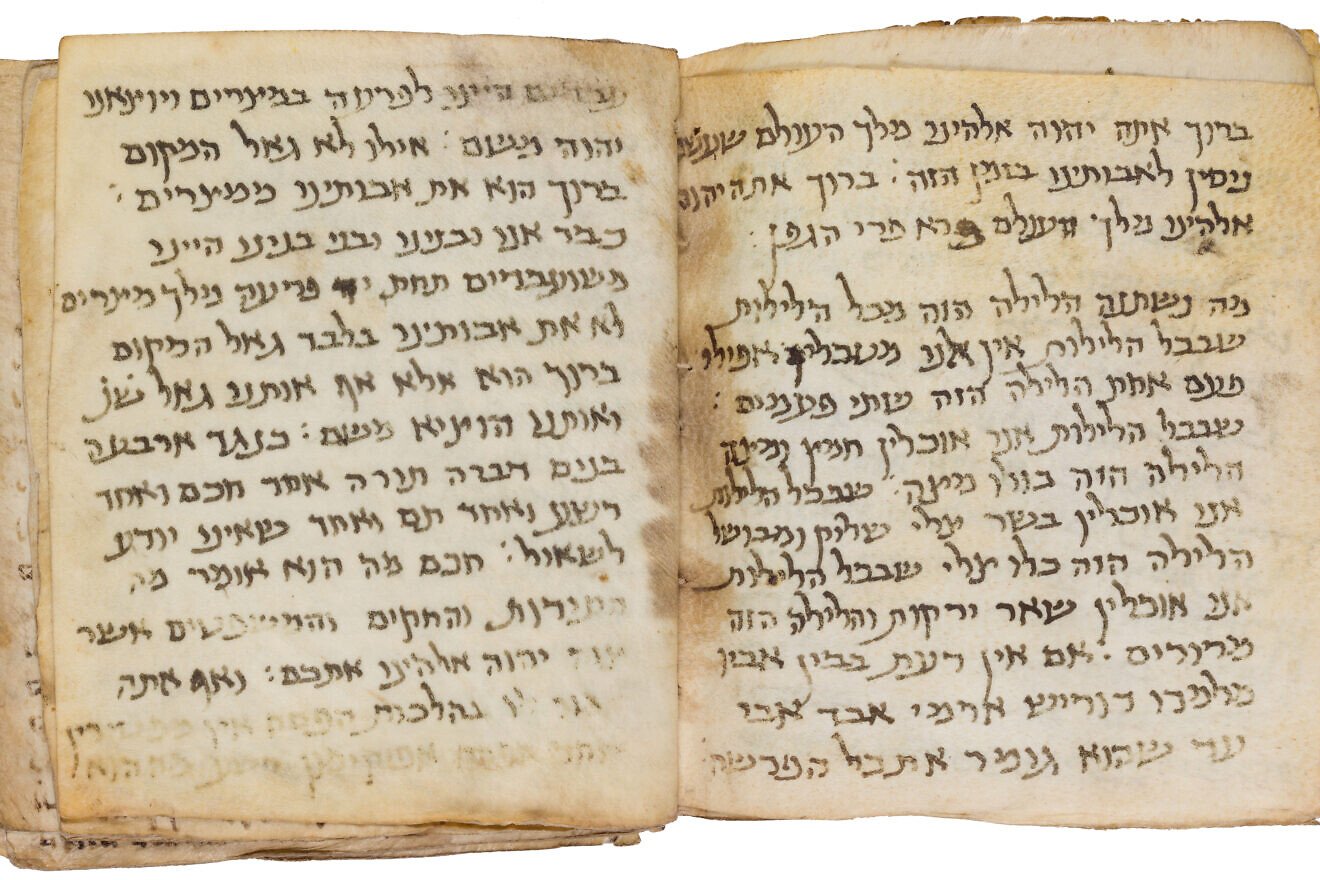 ברוך אתה יהוה אלהינו מלך העולם שעשה
ניסין לאבותינו בזמן הזה : ברוך אתה יהוה
אלהינו מלך העולם בורא פרי הגפן :
מה נשתנה הלילה הזה מכל הלילות
שבכל הלילות אין אנו מטבלין אפילו
פעם אחת הלילה הזה שתי פעמים :
שבכל הלילות אנו אוכלין חמץ ומצה
הלילה הזה כולו מצה : שבכל הלילות
אנו אוכלין בשר צלי שלוק ומבושל
הלילה הזה כלו צלי שבכל הלילות
אנו אוכלין שאר ירקות והלילה הזה
מרורים : אם אין דעת בבין אבין
מלמדו דוריש ארמי אבד אבי
עד שהוא גומר את כל הפרשה
עבדים היינו לפרעה במצרים ויוצאנו
יהוה משם : אילו לא גאל המקום
ברוך הוא את אבותינו ממצרים :
כבר אנו ובנינו ובני בנינו היינו
משועבדים תחת יד פרעה מלך מצרים
לא את אבותינו בלבד גאל המקום
ברוך הוא אלא אף אותנו גאל שנ
ואותנו הוציא משם : כנגד ארבעה
בנים דברה תורה אחד חכם ואחד
רשע ואחד תם ואחד שאינו יודע
לשאול : חכם מה הוא אומר מה
העידות והחקים והמשפטים אשר
צוה יהוה אלהינו אתכם : ואף אתה
אמר לו בהלכות הפסח אין מפטירין
אחר הפסח אפיקומן רשע מה הוא